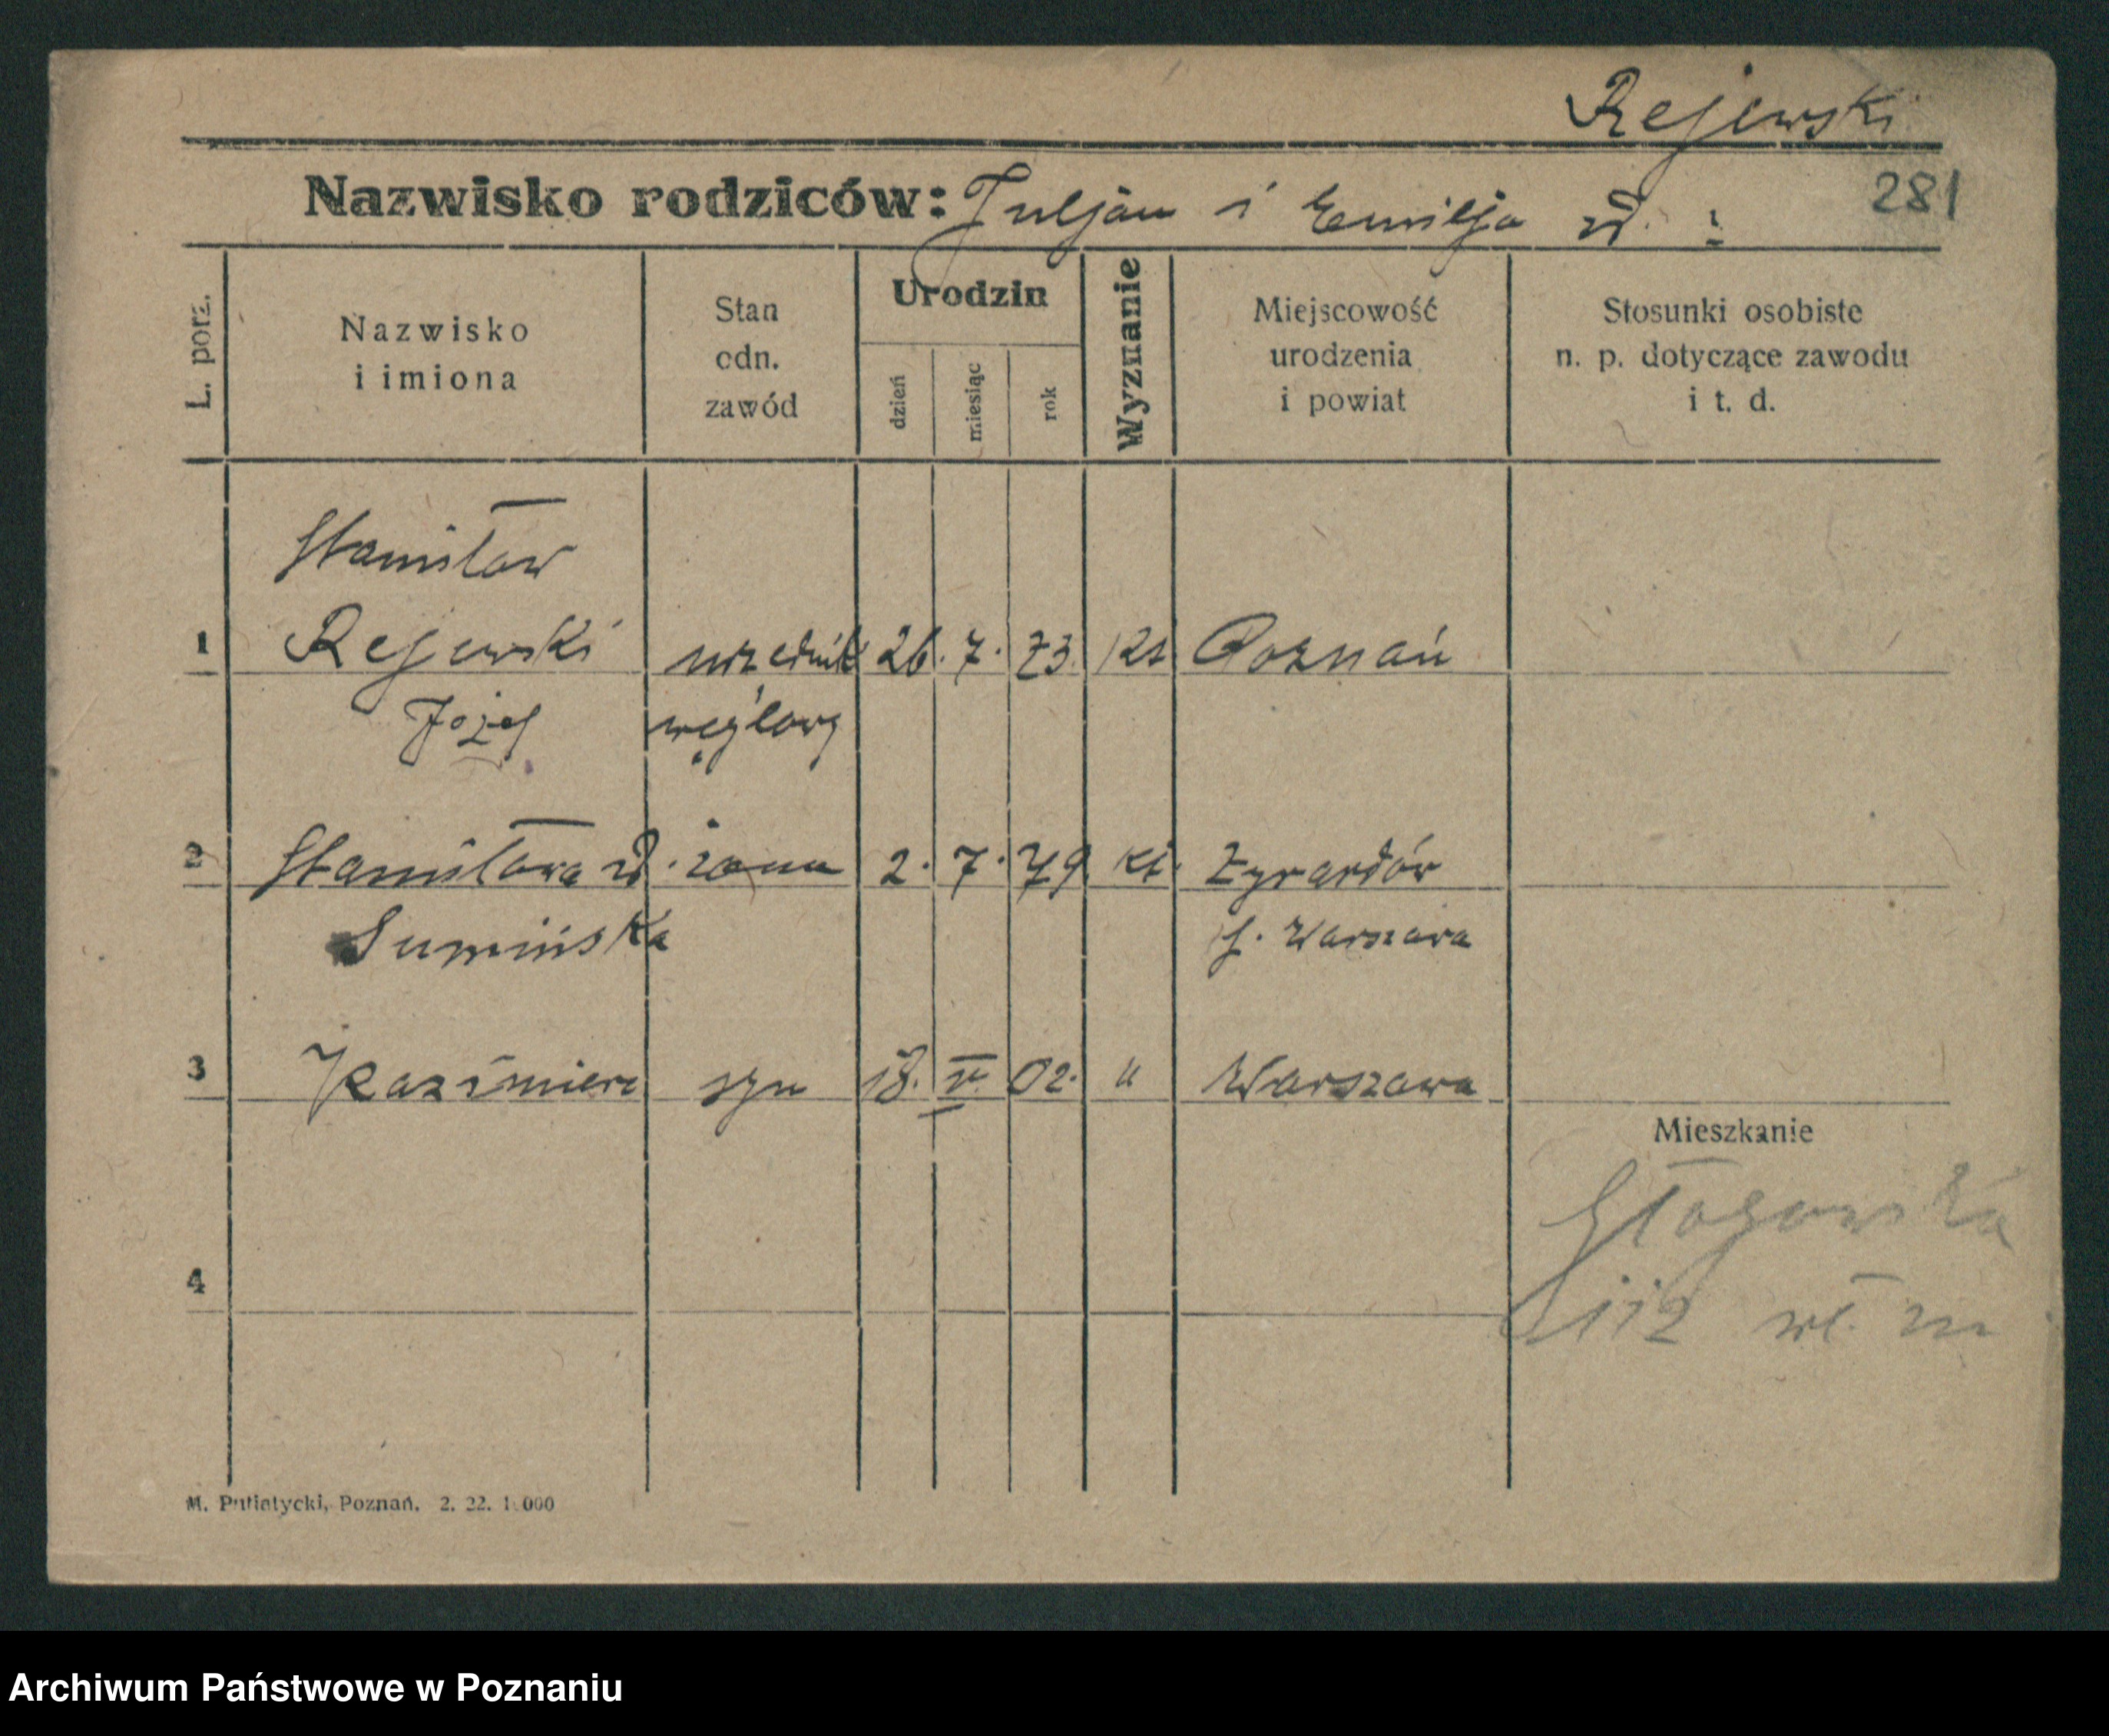 Rejewski
281
Nazwisko rodziców: Juljan i Emilja zd. ?
L. porz.
Nazwisko
i imiona
Stan
odn.
zawód
Urodzin
dzień
miesiąc
rok
Wyznanie
Miejscowość
urodzenia
i powiat
Stosunki osobiste
n. p. dotyczące zawodu
i t. d.
Stanisław
1 Rejewski urzednik 26. 7. 73. kt Poznań
Józef węglowy
2 Stanisława zd. żona 2. 7. 79 kt. Żyrardów
Sumińska Warszawa
3 Kazimierz syn 18. 02. " Warszawa
Mieszkanie
Głogowska
4
112 m
M. Putiatycki, Poznań. 2. 22. 1000
Archiwum Państwowe w Poznaniu